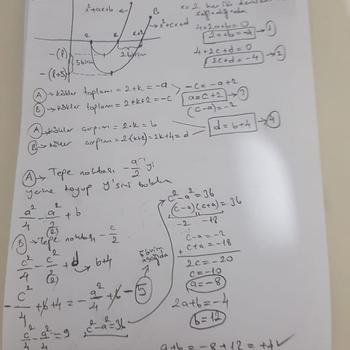 x²+ax+b
B
x²+cx+d
2
k
k+2
2 birim
5 birim
-(l)
-(l+5)
4+2a+b=0
2a+b=-4 → 1
4+2c+d=0
2c+d=-4 → 2
A → kökler toplamı = 2+k = -a
B → kökler toplamı = 2+k+2 = -c
-c = -a+2
a = c+2 → 3
(c-a) = -2
A → kökler çarpımı = 2·k = b
B → kökler çarpımı = 2(k+2) = 2k+4 = d
d = b+4 → 4
A → Tepe noktası -a/2 yi
yerine koyup y'sini bulalım
a²/4 - a²/2 + b
(2)
B → Tepe noktası -c/2
c²/4 - c²/2 + d → b+4
(2)
-c²/4 + b + 4 = -a²/4 + b - 5
5 birim aşağıda
c²/4 - a²/4 = 9
c²-a²=36
c²-a²=36
(c-a)(c+a)=36
-2 -18
c-a=-2
+ c+a=-18
2c=-20
c=-10
a=-8
2a+b=-4
b=12
a+b=-8+12=+4